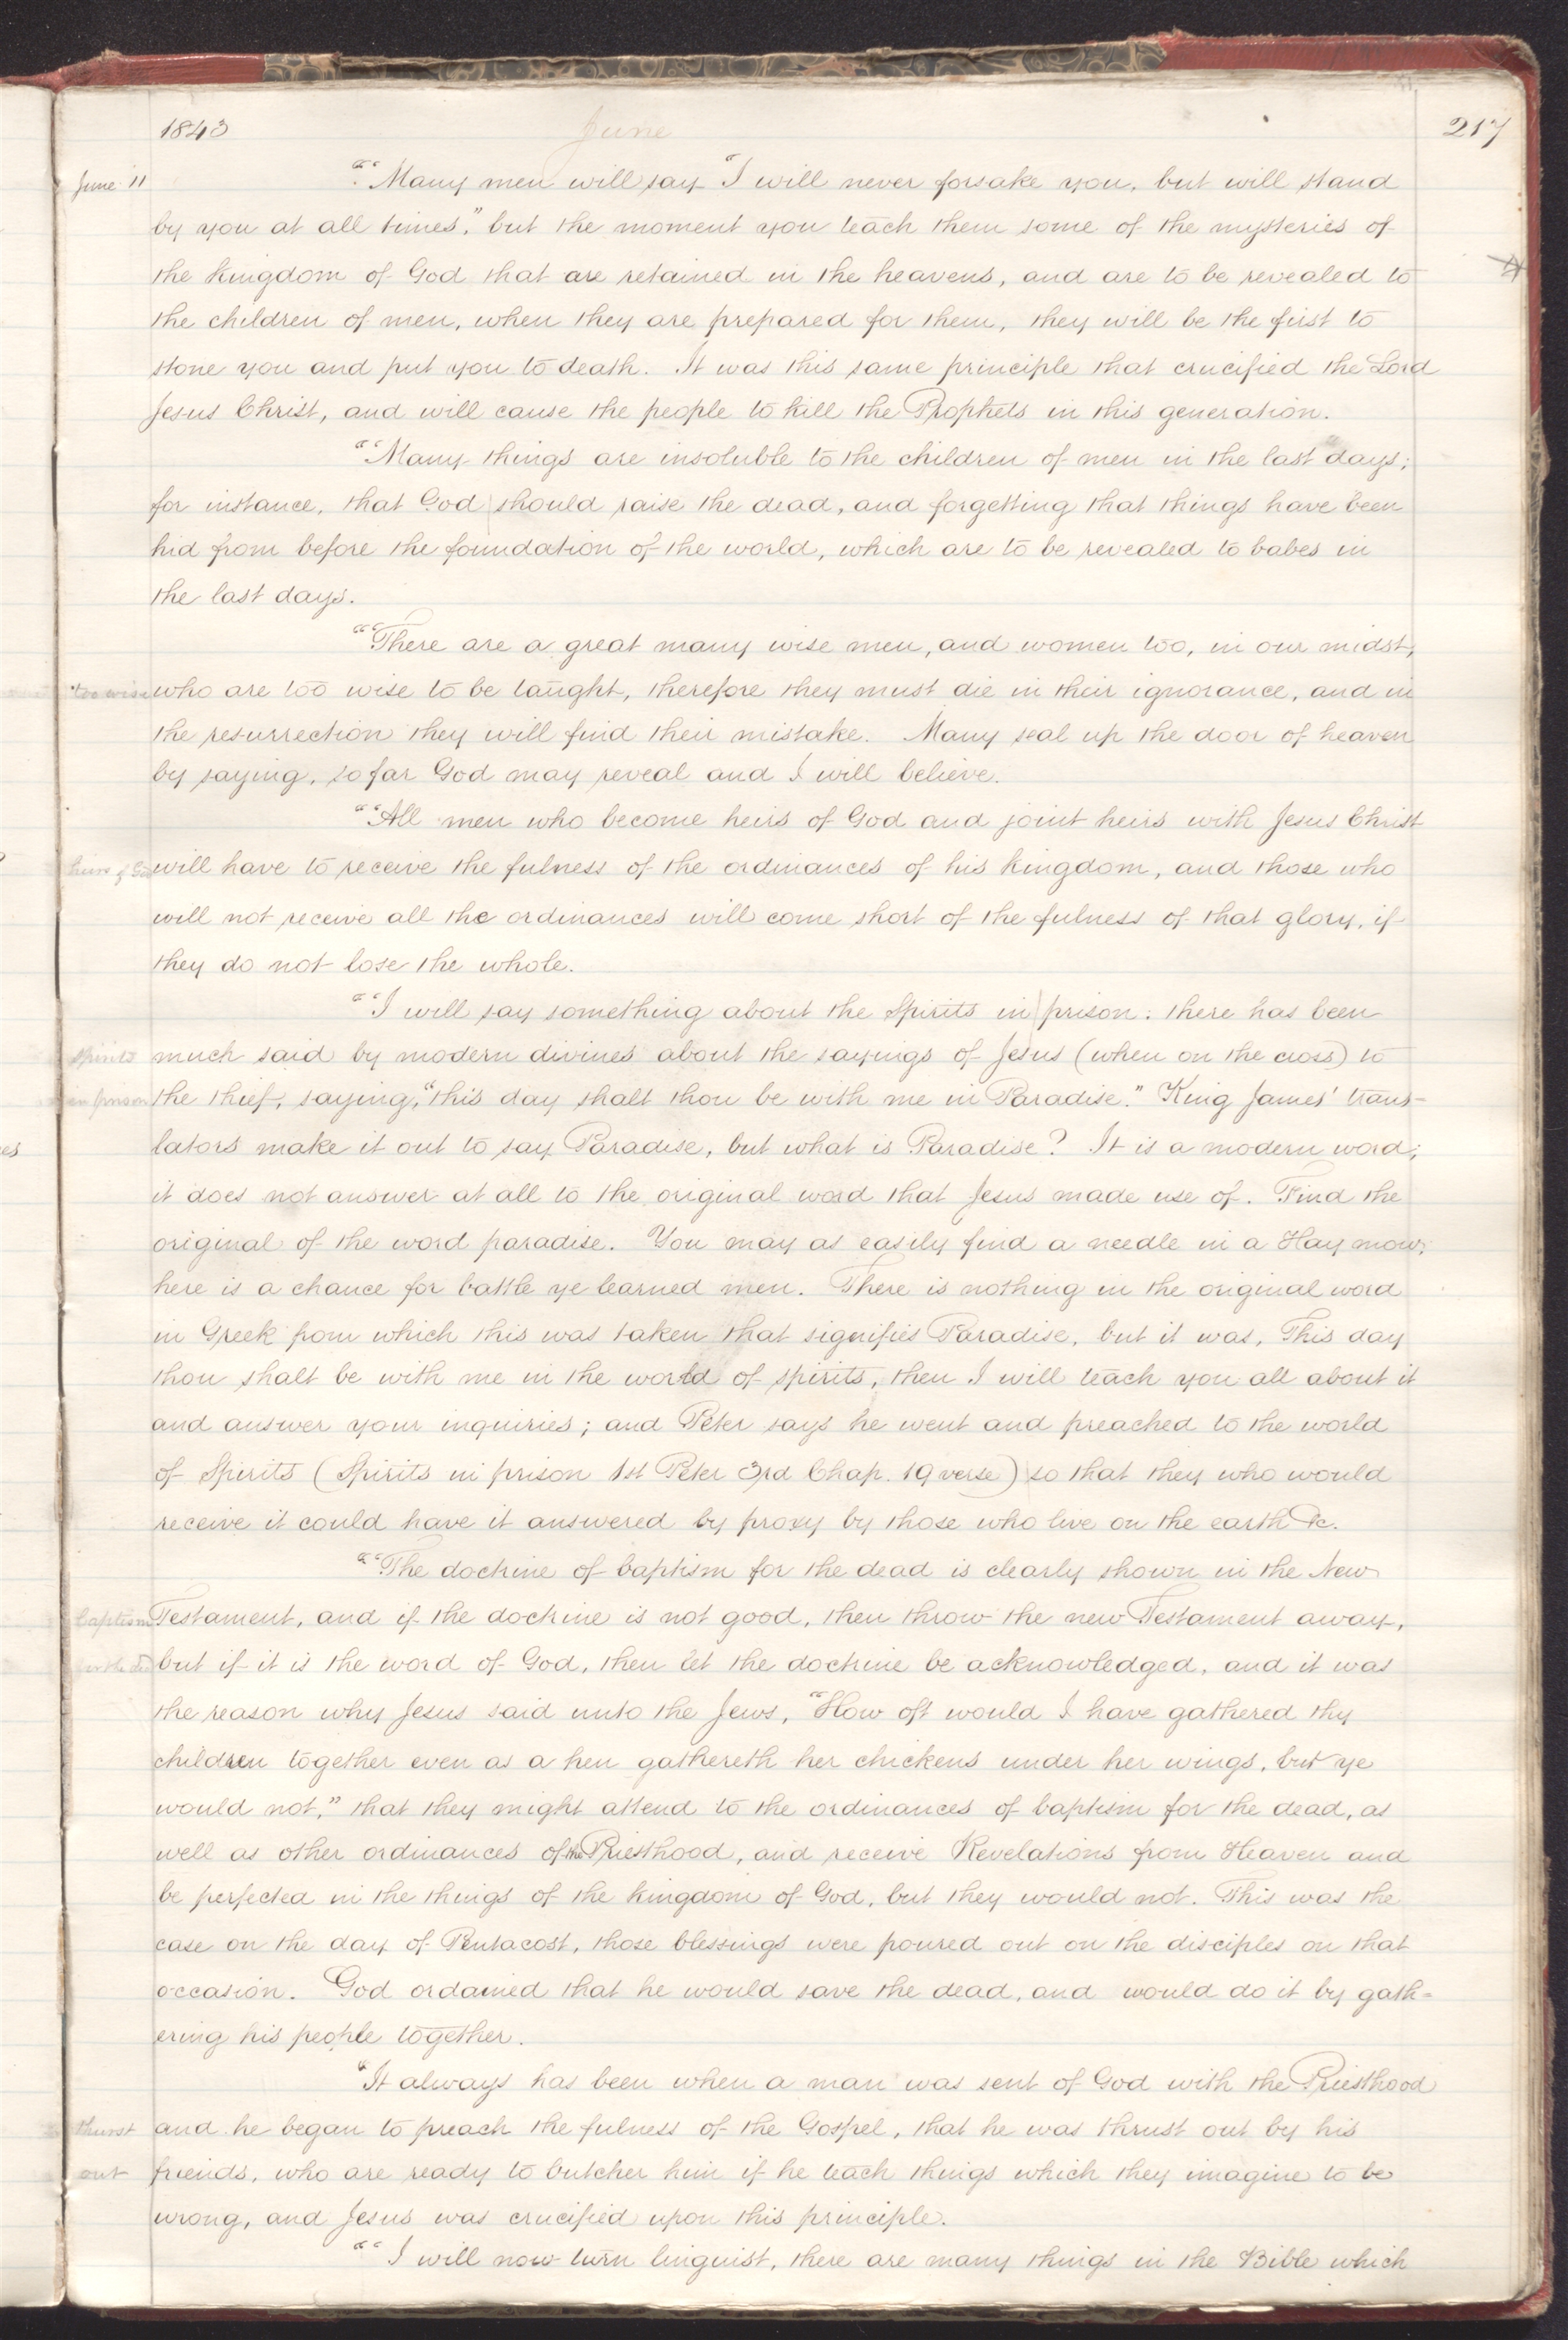 1843 June 217
June 11 "“Many men will say "I will never forsake you, but will stand
by you at all times," but the moment you teach them some of the mysteries of
the kingdom of God that are retained in the heavens, and are to be revealed to
the children of men, when they are prepared for them, they will be the first to
stone you and put you to death. It was this same principle that crucified the Lord
Jesus Christ, and will cause the people to kill the Prophets in this generation.
"“Many things are insoluble to the children of men in the last days;
for instance, that God should raise the dead, and forgetting that things have been
hid from before the foundation of the world, which are to be revealed to babes in
the last days.
"“There are a great many wise men, and women too, in our midst,
too wise who are too wise to be taught, therefore they must die in their ignorance, and in
the resurrection they will find their mistake. Many seal up the door of heaven
by saying, so far God may reveal and I will believe.
"“All men who become heirs of God and joint heirs with Jesus Christ
heirs of God will have to receive the fulness of the ordinances of his kingdom, and those who
will not receive all the ordinances will come short of the fulness of that glory, if
they do not lose the whole.
"“I will say something about the Spirits in prison: there has been
spirits much said by modern divines about the sayings of Jesus (when on the cross) to
in prison the thief, saying, "this day shalt thou be with me in Paradise." King James' trans-
lators make it out to say Paradise, but what is Paradise? It is a modern word;
it does not answer at all to the original word that Jesus made use of. Find the
original of the word paradise. You may as easily find a needle in a Hay mow;
here is a chance for battle ye learned men. There is nothing in the original word
in Greek from which this was taken that signifies Paradise, but it was, This day
thou shalt be with me in the world of spirits, then I will teach you all about it
and answer your inquiries; and Peter says he went and preached to the world
of Spirits (Spirits in prison 1st Peter 3rd Chap. 19 verse) so that they who would
receive it could have it answered by proxy by those who live on the earth &c.
"“The doctrine of baptism for the dead is clearly shown in the New
baptism Testament, and if the doctrine is not good, then throw the new Testament away,
for the dead but if it is the word of God, then let the doctrine be acknowledged, and it was
the reason why Jesus said unto the Jews, "How oft would I have gathered thy
children together even as a hen gathereth her chickens under her wings, but ye
would not," that they might attend to the ordinances of baptism for the dead, as
well as other ordinances of the Priesthood, and receive Revelations from Heaven and
be perfected in the things of the kingdom of God, but they would not. This was the
case on the day of Pentacost, those blessings were poured out on the disciples on that
occasion. God ordained that he would save the dead, and would do it by gath=
ering his people together.
"It always has been when a man was sent of God with the Priesthood
thurst and he began to preach the fulness of the Gospel, that he was thrust out by his
out friends, who are ready to butcher him if he teach things which they imagine to be
wrong, and Jesus was crucified upon this principle.
"“I will now turn linguist, there are many things in the Bible which